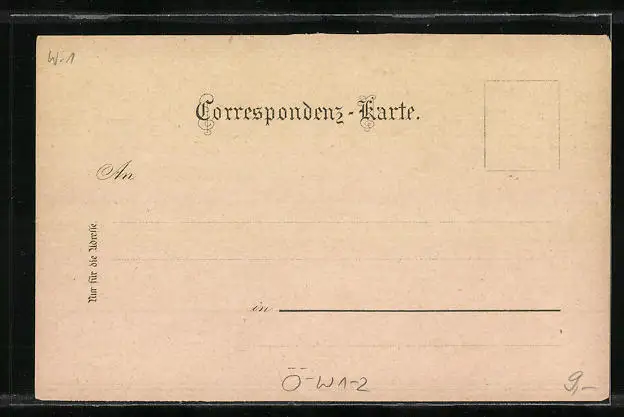 W-1
Correspondenz-Karte.
An
Nur für die Adresse.
in
Ö-W1-2
9,-